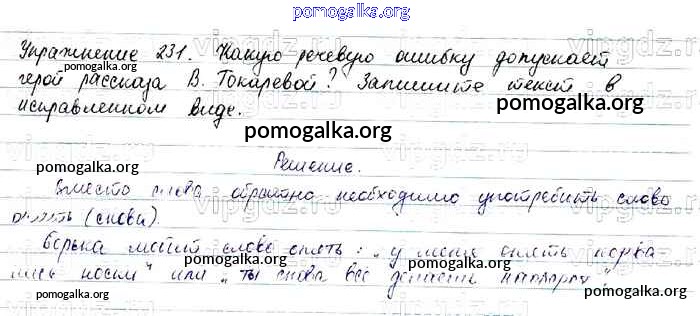 pomogalka.org
Упражнение 231. Какую речевую ошибку допускает
герой рассказа В. Токаревой? Запишите текст в
исправленном виде.
pomogalka.org
pomogalka.org
Решение.
pomogalka.org
Вместо слова обратно необходимо употребить слово
опять (снова).
pomogalka.org
Борька мотит слово опять: "у меня опять порва-
лись носки" или "ты снова все делаешь наоборот".
pomogalka.org
pomogalka.org
pomogalka.org